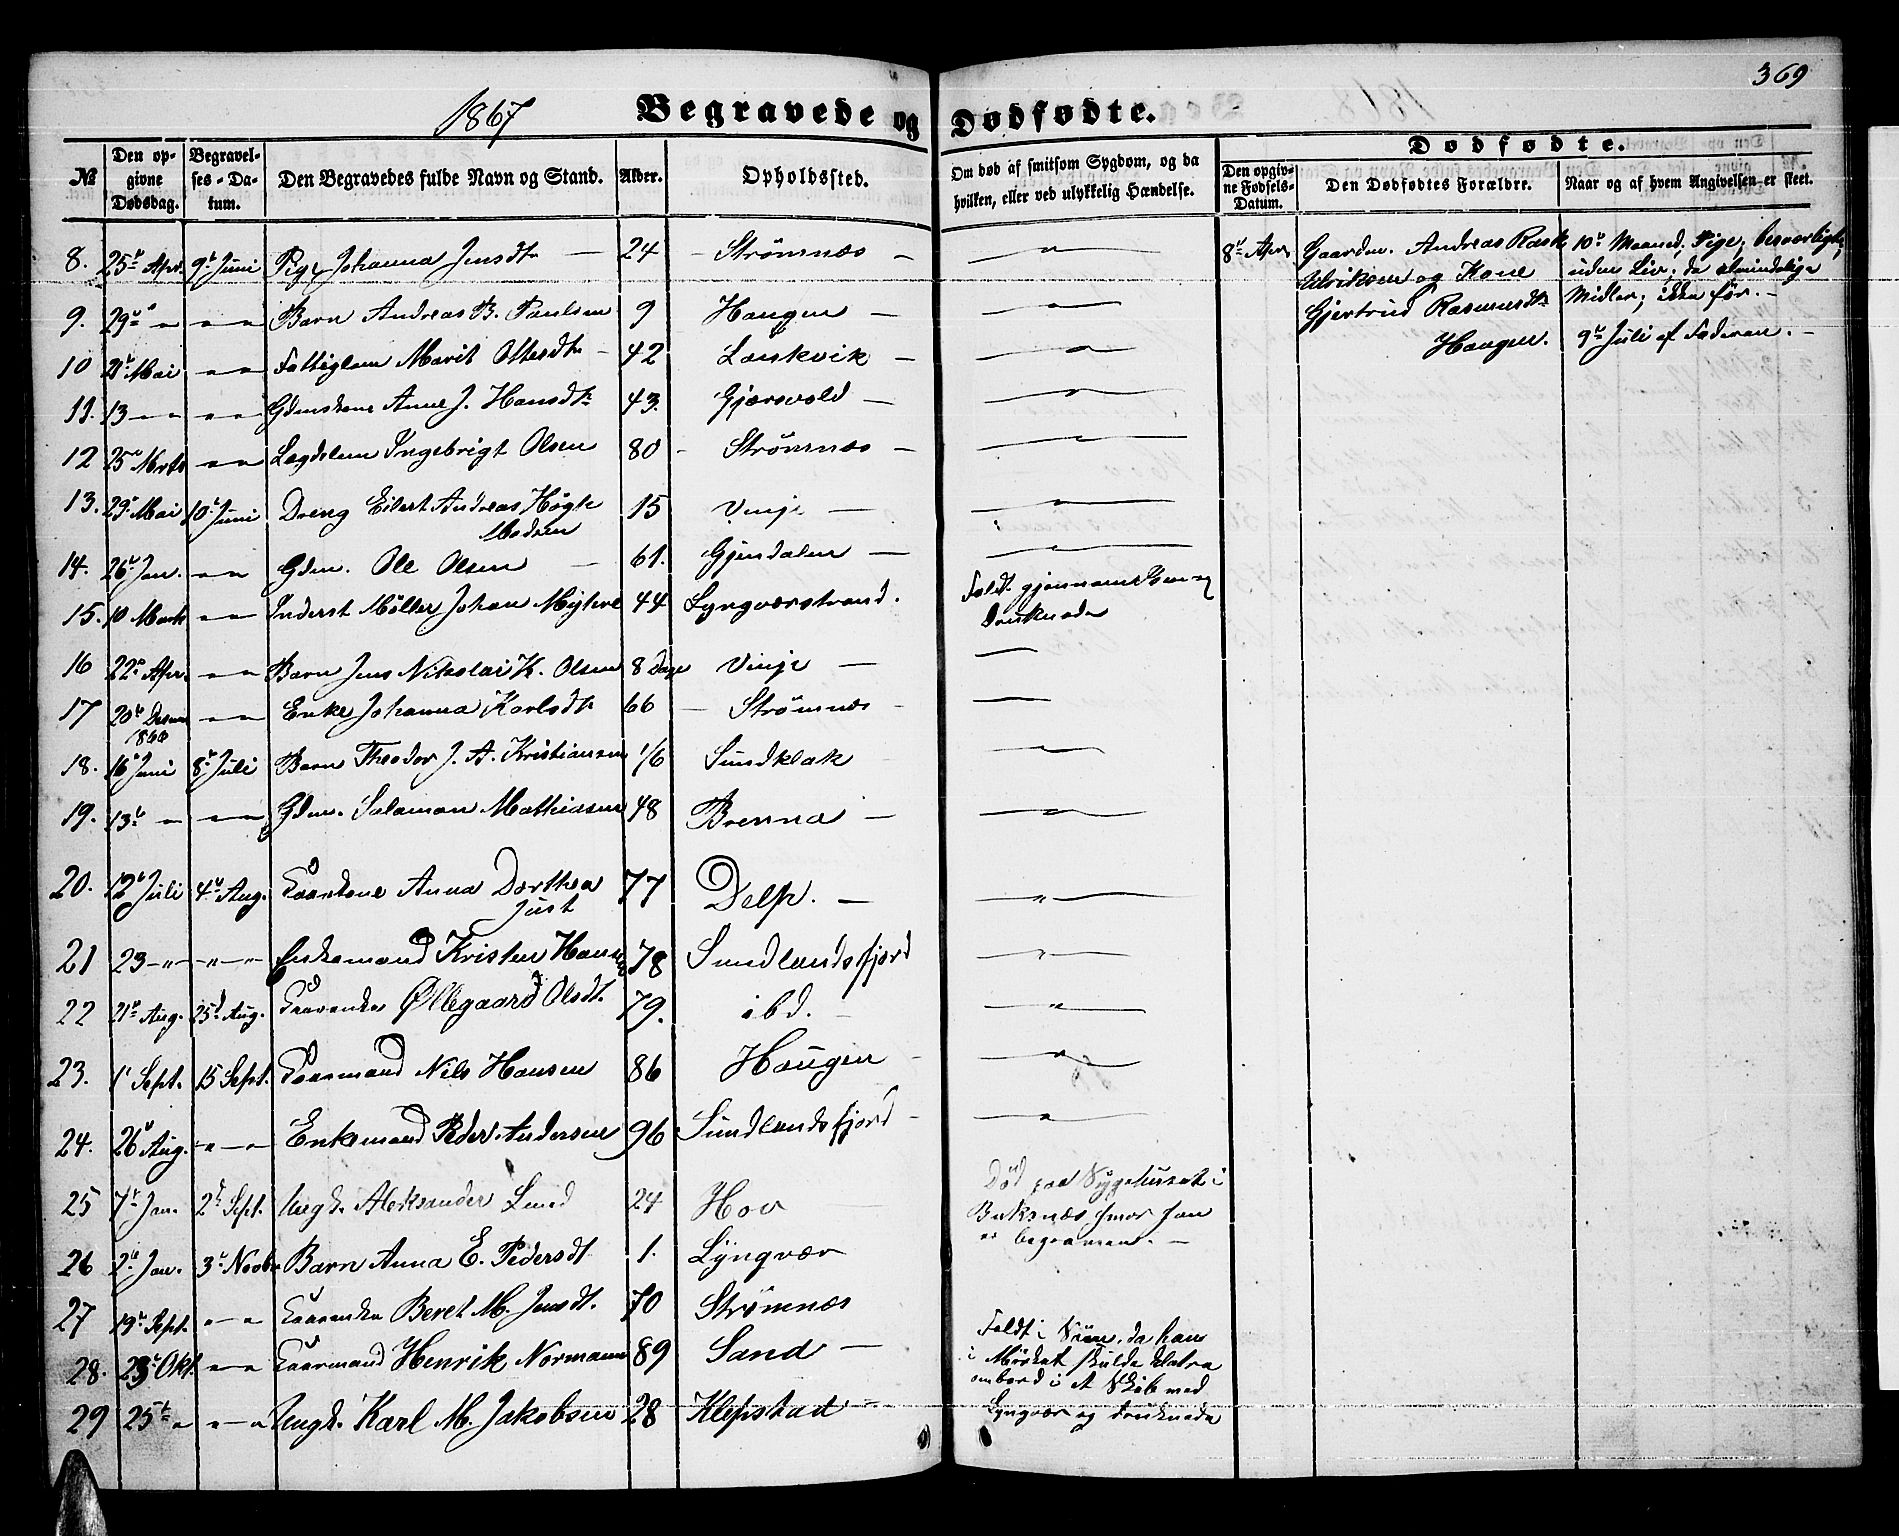 369
1867
Begravede og Dødfødte.
№
Den opgivne Dødsdag.
Begravelses-Datum.
Den Begravedes fulde Navn og Stand.
Alder.
Opholdssted.
Om død af smitsom Sygdom, og da hvilken, eller ved ulykkelig Hændelse.
Dødfødte.
Den opgivne Fødsels-Datum.
Den Dødfødtes Forældre.
Naar og af hvem Angivelsen er skeet.
8. 25de Apr. 9de Juni Pige Johanna Jensdtr 24 Strømnæs — " —
8de Apr. Gaardm. Andreas Rask
Ulriksen og Kone
Gjertrud Rasmusdtr
Haugen.
10de Maaned; Pige; besværligt,
uden Liv; da almindelige
Midler; ikke før. -
9de Juli af Faderen. -
9. 29de " " " Barn Andreas B. Paulsen 9 Haugen — " —
10 21de Mai " " Fattiglem Marit Ottesdtr 42 Laukvik — " —
11. 13 - " " " Gdmskone Anne J. Hansdtr 43. Gjærsvold — " —
12 25de Mrts " " Lægdslem Ingebrigt Olsen 80 Strømnæs — " —
13. 29de Mai 10de Juni Dreng Eilert Andreas Høgh
Madsen 15 Vinje — " —
14. 26de Jan. " " Gdm. Ole Olsen 61. Gjendalen — " —
15. 10 Marts " " Inderst Møller Johan Myhre 44 Lyngværstrand. Faldt gjennem Isen og
druknede
16 22de Apr. " " Barn Jens Nikolai K. Olsen 8 Dage Vinje —
17 20de Decem
1866 " " Enke Johanna Karlsdtr 66 Strømnæs —
18. 16de Juni 8de Juli Barn Theodor J. A. Kristiansen 1/6 Sundklak — " —
19. 13de " " " Gdm. Salamon Mathiasen 48 Brenna — " —
20. 12te Juli 4de Aug. Kaarkone Anna Dorthea
Just 77 Delp. — " —
21 23 - " - " - " - Enkemand Kristen Hansen 78 Sundlandsfjord — " —
22 21de Aug. 25de Aug. Kaarenke Øllegaard Olsdt. 79. ibd. — " —
23. 1' Sept. 15 Sept. Kaarmand Nils Hansen 86 Haugen — " —
24. 26de Aug. " - " Enkemand Peder Andersen 96 Sundlandsfjord — " —
25 7de Jan. 2de Sept. Ungk. Aleksander Lund 24 Hov Død paa Sygehuset i
Buksnæs hvor han
er begraven. -
26 2de Jan. 3de Novbr Barn Anna E. Pedersdt 1. Lyngvær
27 19de Sept. " - " Kaarenke Beret M. Jensdt. 70 Strømnæs
28. 23de Okt. " " Kaarmand Henrik Normann 89 Sand —
29 25de " " - " Ungk. Karl M. Jakobsen 28 Klepstad Faldt i Søen, da han
i Mørket skulde klatre
ombord i et Skib med
Lyngvær og druknede